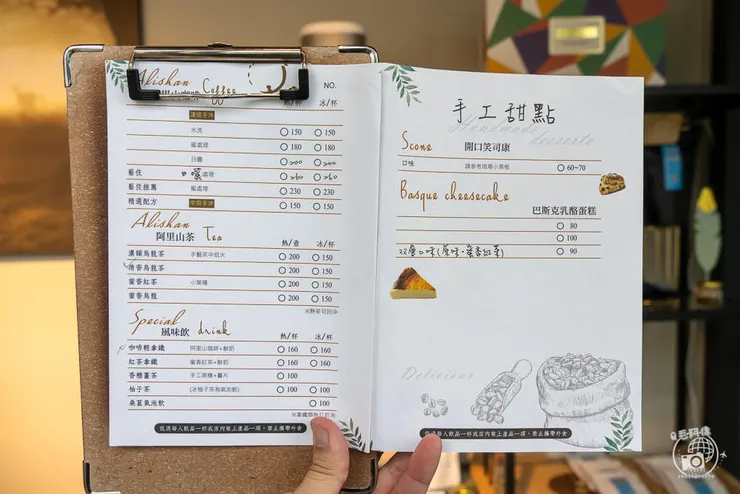 Alishan Coffee
NO.
熱/杯 冰/杯
淺焙手沖
水洗 150 150
蜜處理 180 180
日曬 200 200
藝伎 日曬處理 260 260
藝伎推薦 蜜處理 230 230
精選配方 中焙手沖 150 150
Alishan
阿里山茶 Tea
熱/壺 冰/杯
凍頂烏龍茶 手藝茶中焙火 200 150
清香烏龍茶 200 150
蜜香紅茶 小葉種 200 150
蜜香烏龍 200 150
※熱茶可回沖
Special
風味飲 drink
熱/杯 冰/杯
咖啡輕拿鐵 阿里山咖啡+鮮奶 160 160
紅茶拿鐵 蜜香紅茶+鮮奶 160 160
香檬薑茶 手工黑糖+薑片 100
柚子茶 (冰柚子茶為氣泡飲) 150 150
桑葚氣泡飲 100
低消每人飲品一杯或店內架上產品一項,禁止攜帶外食
手工甜點
Handmade desserts
Scone 開口笑司康
口味 請參考現場小黑板 60~70
Basque cheesecake
巴斯克乳酪蛋糕
80
100
雙層口味(原味·蜜香紅茶) 90
Delicious
低消每人飲品一杯或店內架上產品一項,禁止攜帶外食
photography